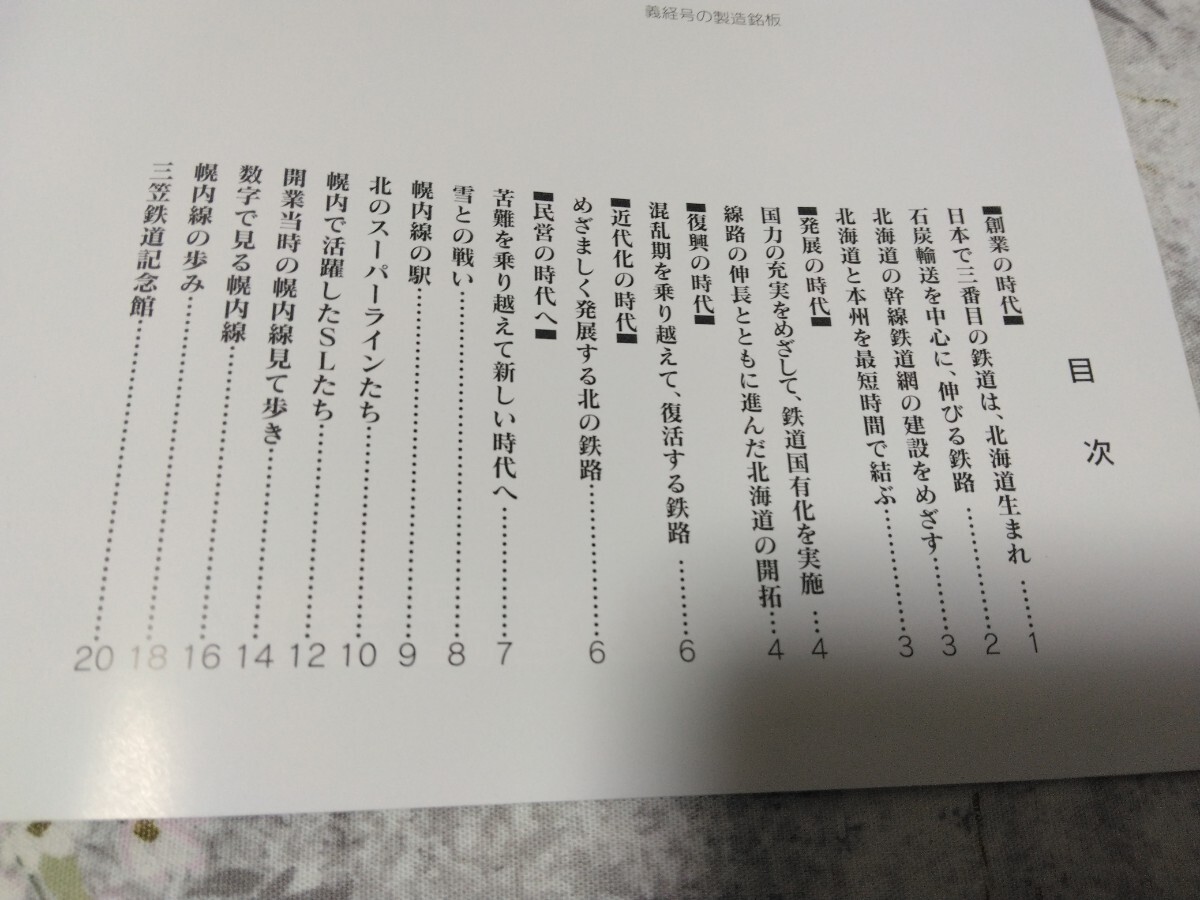 義経号の製造銘板
目次
■創業の時代■
日本で三番目の鉄道は、北海道生まれ ……1
石炭輸送を中心に、伸びる鉄路 ……………2
北海道の幹線鉄道網の建設をめざす…………3
北海道と本州を最短時間で結ぶ………………3
■発展の時代■
国力の充実をめざして、鉄道国有化を実施 …4
線路の伸長とともに進んだ北海道の開拓…4
■復興の時代■
混乱期を乗り越えて、復活する鉄路 ………6
■近代化の時代■
めざましく発展する北の鉄路…………………6
■民営の時代へ■
苦難を乗り越えて新しい時代へ ………………7
雪との戦い……………………………………8
幌内線の駅……………………………………9
北のスーパーラインたち………………………10
幌内で活躍したSLたち………………………12
開業当時の幌内線見て歩き……………………14
数字で見る幌内線………………………………16
幌内線の歩み……………………………………18
三笠鉄道記念館…………………………………20